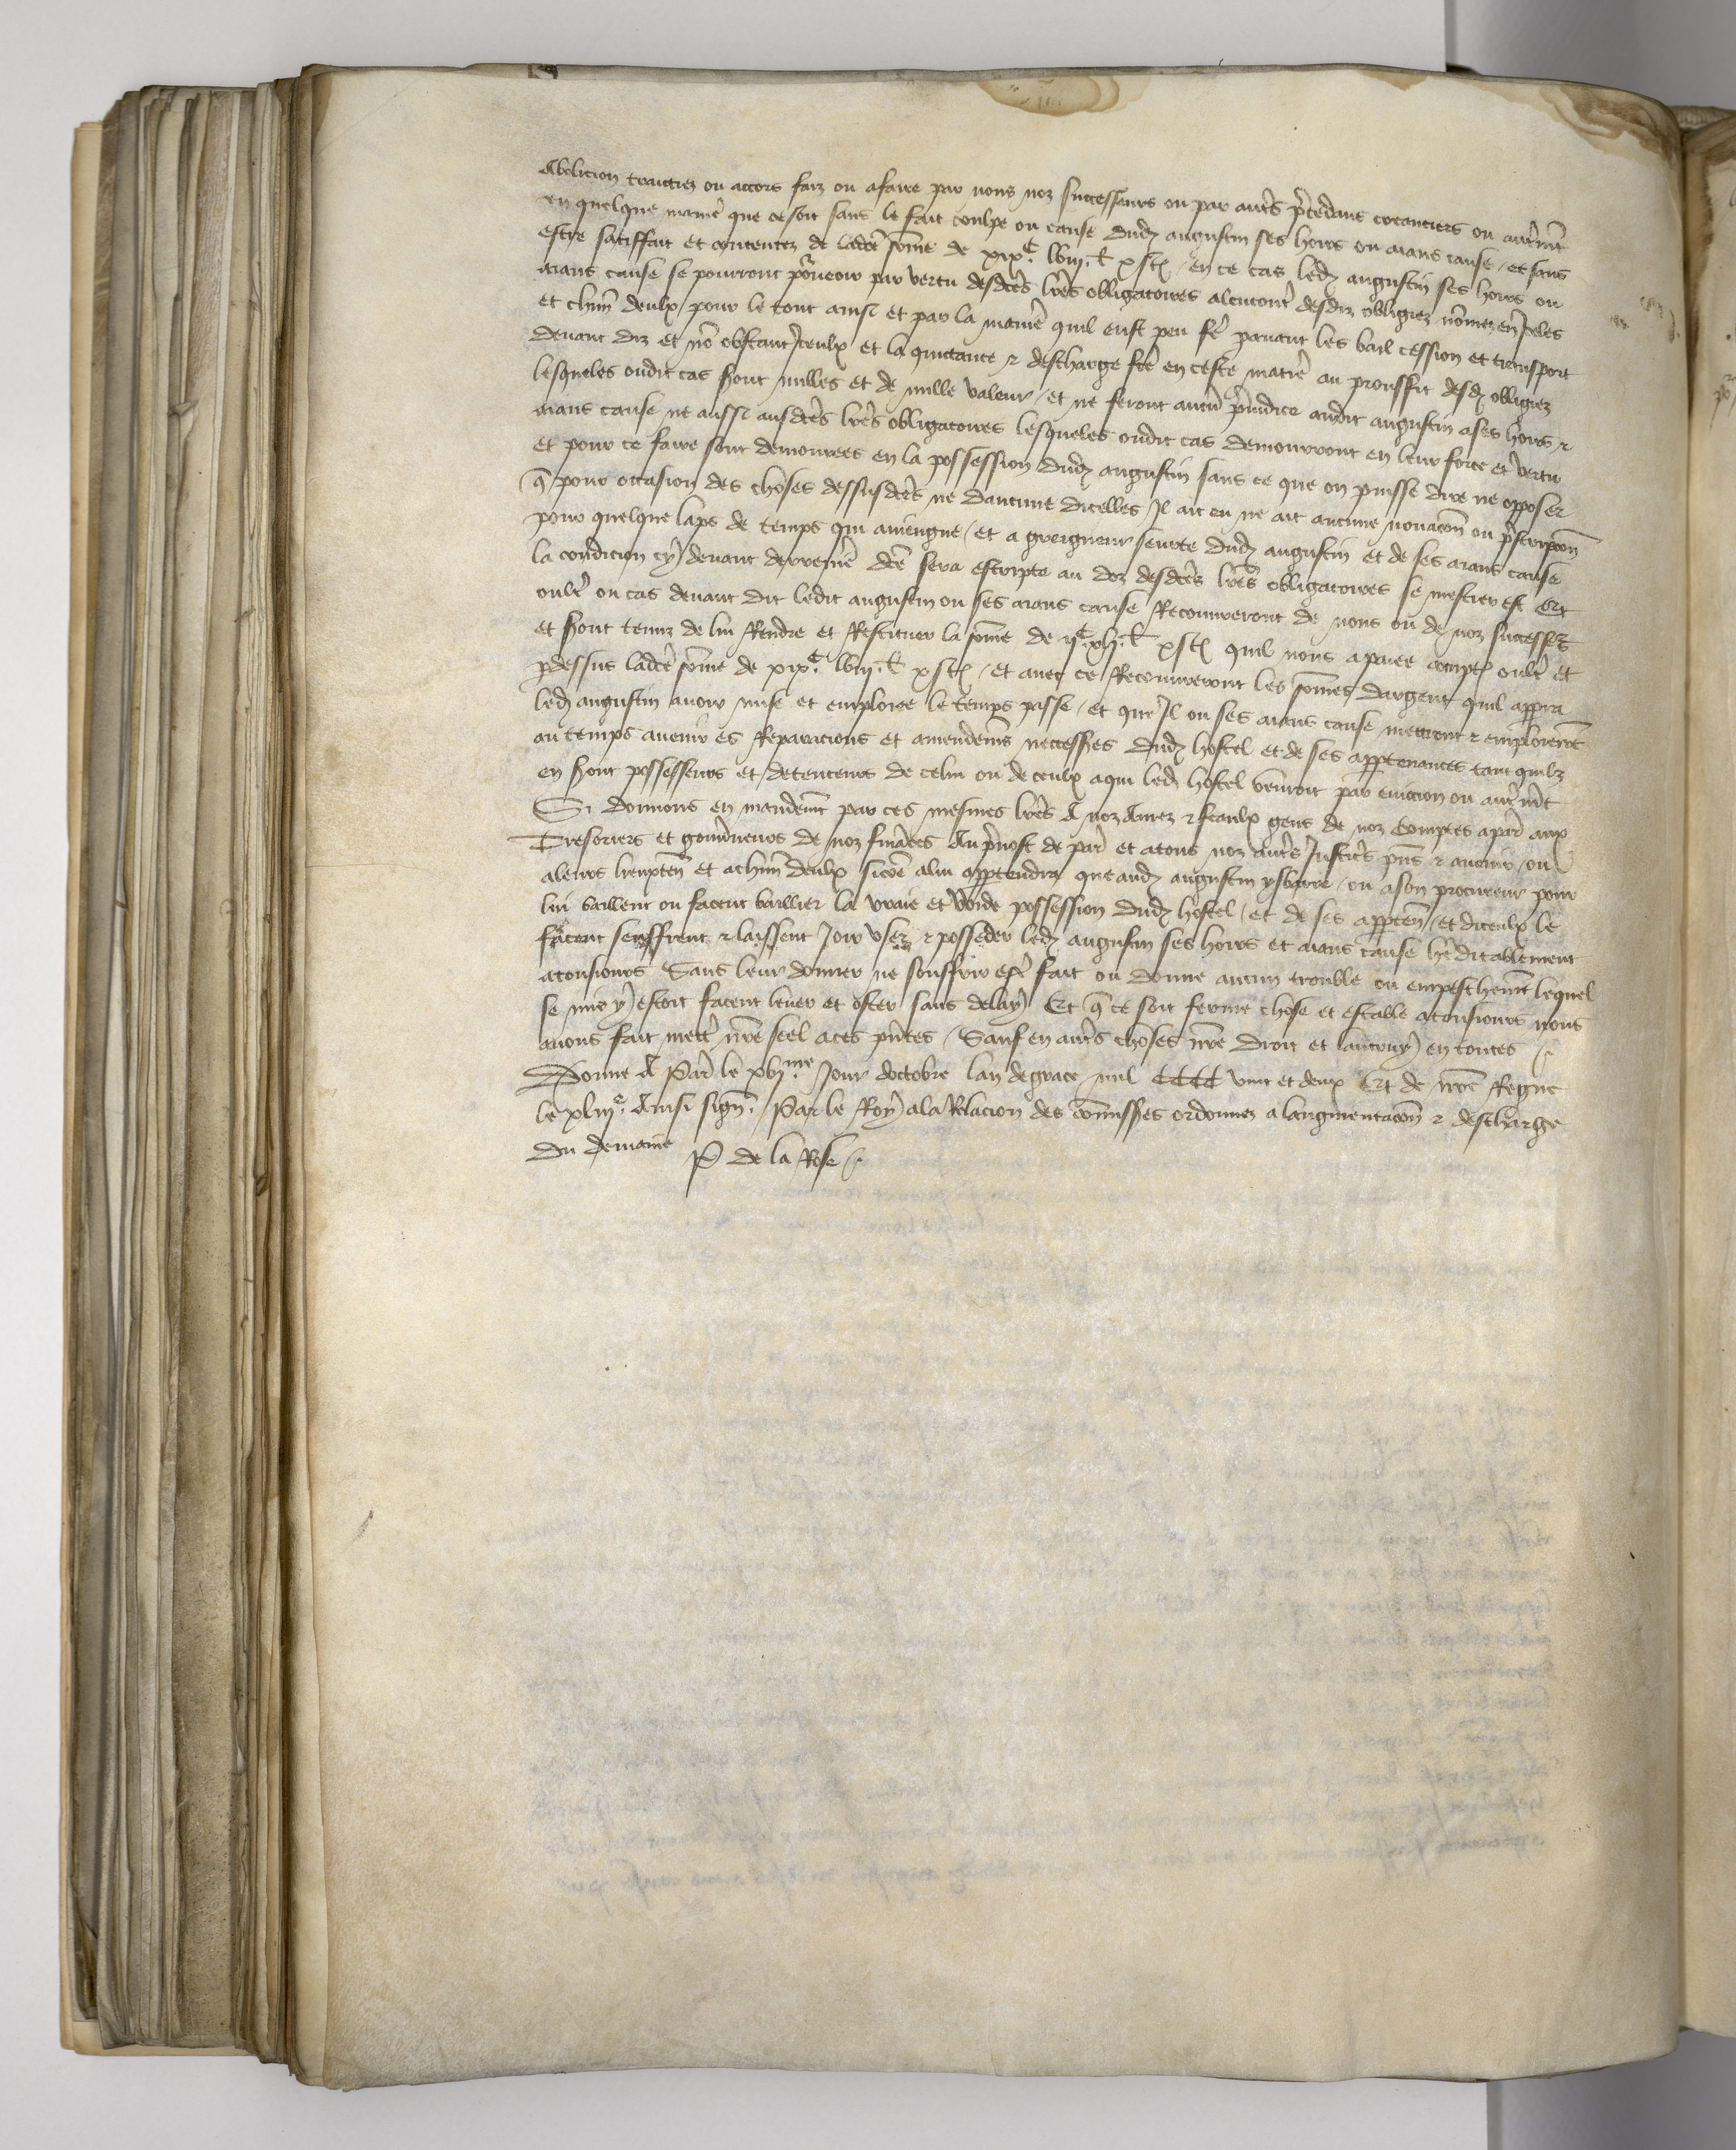 Abolicion traictiez ou accors faiz ou afaire par nous noz successeurs ou par autrs prcedans creanciers ou autrmt
en quelque manie que ce soit sans le fait coulpe ou cause dudˀ augustin ses hoirs ou aians cause / et sans
estre satiffait et contentez de ladce some de xixᶜ lviij. ł. x st. / en ce cas ledˀ augustin ses hoirs ou
aians cause se pourront prveoir par vertu desdces lres obligatoires alencontr desdiz obligiez nomez en Iceles
et chun deulx / pour le tout ainsi et par la manie quil eust peu fe parauant les bail cession et transport
deuant diz et no obstant Iceulx et la quictance & descharge fce en ceste matie au prouffit desdˀ obligiez
lesqueles oudit cas sont nulles et de nulle valeur / et ne feront aucu preiudice audit augustin ases hoirs &
aians cause ne aussi ausdces lres obligatoires lesqueles oudit cas demourront en leur force et vertu
et pour ce faire sont demourees en la possession dudˀ augustin sans ce que on puisse dire ne opposer
q pour occasion des choses dessusdces ne daucune dicelles Il ait eu ne ait aucune nouacon ou prscripcon
pour quelque laps de temps qui auiengne / et a greigneur seurte dudˀ augustin et de ses aians cause
la condicion cy deuant derreniere dce sera escripte au doz desdces lres obligatoires se mestier est Et
oultr ou cas deuant dit ledit augustin ou ses aians cause Recouureront de nous ou de noz successrs
et sont tenuz de lui Rendre et Restituer la some de ijᶜ xlj. ł. x st. quil nous a paiee comptˀ oultr et
pdessus ladce some de xixᶜ lviij. ł. x st. / et auec ce Recouureront les somes dargent quil appra
ledˀ augustin auoir mise et emploiee le temps passe / et que Il ou ses aians cause mettront & emploieront
ou temps auenir es Reparacions et amendemes neccessres dudˀ hostel et de ses appartenances tant quilz
en sont possesseurs et detenteurs de celui ou de ceulx aqui ledˀ hostel vendroit par euiccion ou autrmt
Si donnons en mandemt par ces mesmes lres A noz Amez & feaulx gens de noz comptes apar aux
Tresoriers et gouurneurs de noz finaces Au preuost de par et atous noz autrs Justicrs pns & auenir / ou
aleurs lieuxten et achun deulx sicoe alui appartendra que audˀ augustin ysbarre / ou ason procureur pour
lui baillent ou facent baillier la vraie et vuide possession dudˀ hostel / et de ses apparten / et diceulx le
facent seuffrent & laissent Joir vser & posseder ledˀ augustin ses hoirs et aians cause heditablement
atousiours Sans leur donner ne souffrir estr fait ou donne aucun trouble ou empeschemt lequel
se mis y estoit facent leuer et oster sans delay Et q ce soit ferme chose et estable atousiours nous
auons fait mettr nre seel aces pntes / Sauf en autrs choses nre droit et lautruy en toutes /.
Donne A Par le xvjme Jour doctobre lan de grace mil CCCC vint et deux Et de nre Regne
le xliije. Ainsi signe. Par le Roy ala Relacion des comissres ordonnez a laugmentacon & descharge
du demaine P de la Rose /.